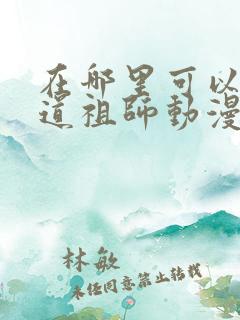 在哪里可以
道祖師動漫
林敏
未经同意禁止转载